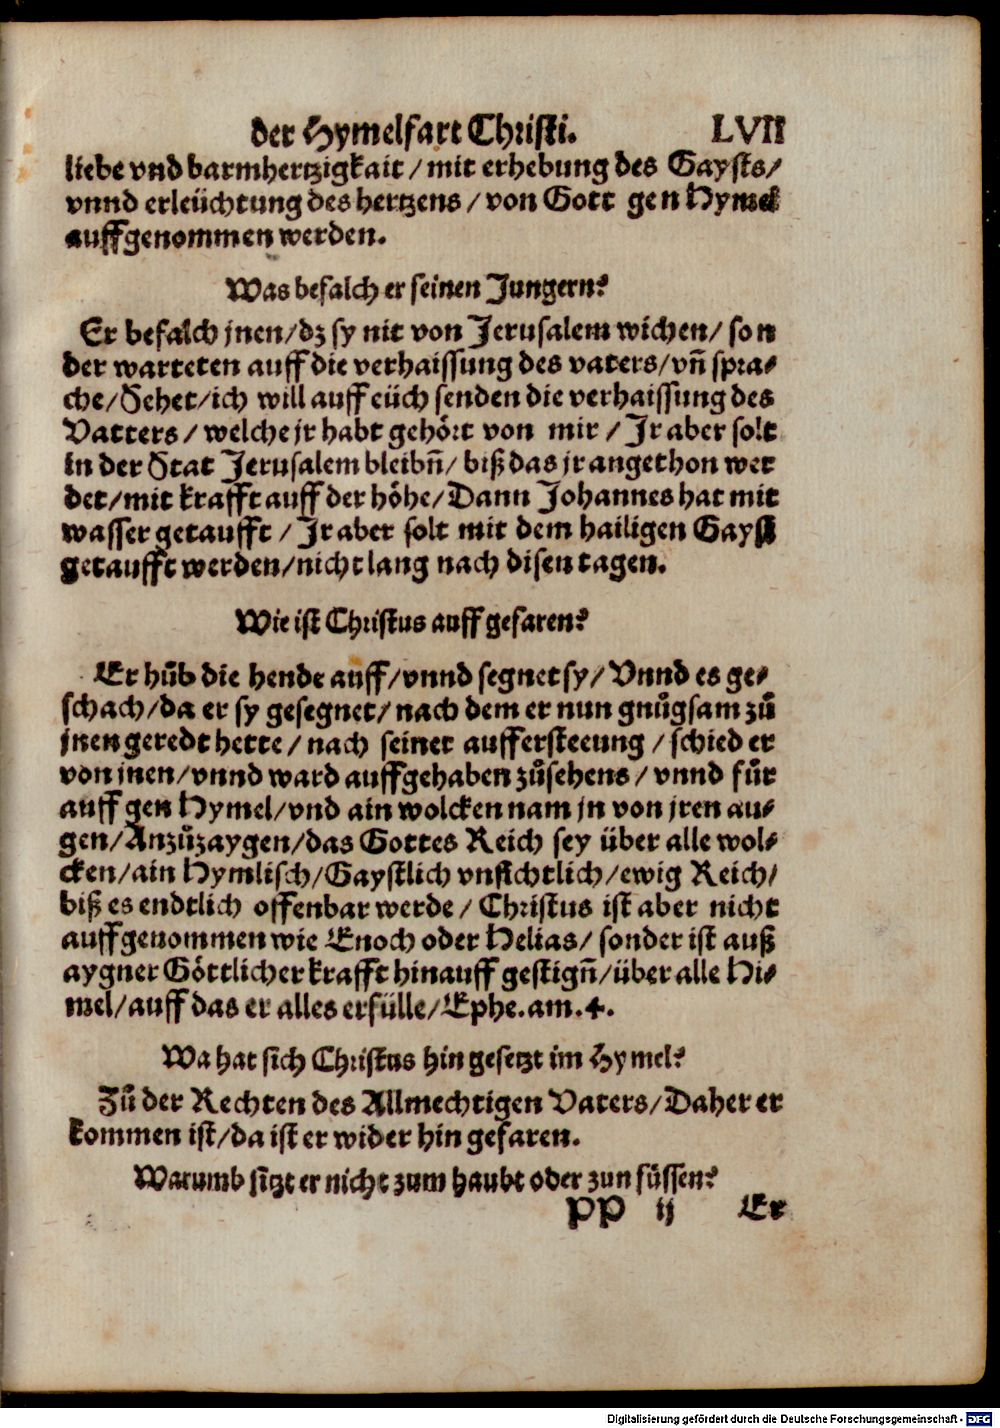 der Hymelfart Christi. LVII
liebe vnd barmhertzigkait / mit erhebung des Gaysts/
vnnd erleüchtung des hertzens / von Gott gen Hymel
auffgenommen werden.
Was befalch er seinen Jungern?
Er befalch jnen/dz sy nit von Jerusalem wichen/ son
der warteten auff die verhaissung des vaters/vñ spra⸗
che/Sehet/ich will auff eüch senden die verhaissung des
Vatters / welche jr habt gehört von mir / Jr aber solt
in der Stat Jerusalem bleibñ/ biß das jr angethon wer
det/mit krafft auff der höhe/Dann Johannes hat mit
wasser getaufft / Jr aber solt mit dem hailigen Gayst
getaufft werden/nicht lang nach disen tagen.
Wie ist Christus auff gefaren?
Er hůb die hende auff/vnnd segnet sy/ Vnnd es ge⸗
schach/da er sy gesegnet/nach dem er nun gnůgsam zů
jnen geredt hette / nach seiner auffersteeung / schied er
von jnen/vnnd ward auffgehaben zůsehens / vnnd fůr
auff gen Hymel/vnd ain wolcken nam jn von jren au⸗
gen/Anzůzaygen/das Gottes Reich sey über alle wol⸗
cken/ain Hymlisch/Gaystlich vnsichtlich/ewig Reich/
biß es endtlich offenbar werde / Christus ist aber nicht
auffgenommen wie Enoch oder Helias/ sonder ist auß
aygner Göttlicher krafft hinauff gestignñ/über alle Hi⸗
mel/auff das er alles erfülle/Ephe.am.4.
Wa hat sich Christus hin gesetzt im Hymel?
Zů der Rechten des Allmechtigen Vaters/Daher er
kommen ist/da ist er wider hin gefaren.
Warumb sitzt er nicht zum haubt oder zun füssen?
PP ij Er
Digitalisierung gefördert durch die Deutsche Forschungsgemeinschaft - DFG